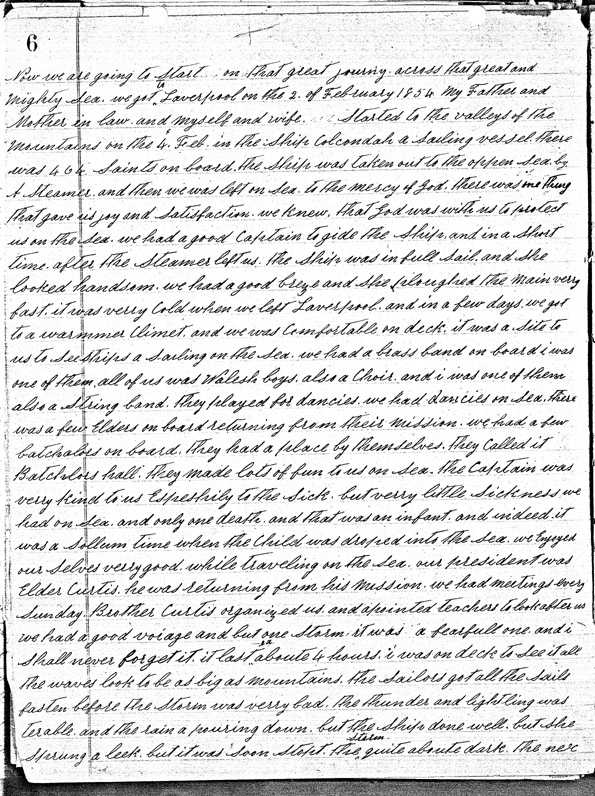 6
Now we are going to start on that great journy. across that great and
mighty Sea. we got to Laverpool on the 2. of February 1854 My Father and
Mother in law. and myself and wife. Started to the valleys of the
mountains on the 4. Feb. in the Ship Colcondah a Sailing vessel. there
was 464 Saints on board. the Ship was taken out to the oppen Sea. by
A Steamer. and then we was left on Sea. to the mercy of God. there was one thing
that gave us joy and Satisfaction. we knew. that God was with us to protect
us on the Sea. we had a good Captain to gide the Ship. and in a Short
time. after the Steamer left us. the Ship was in full Sail. and She
looked handsom. we had a good breze and She ploughed the main verry
fast. it was verry Cold when we left Laverpool. and in a few days. we got
to a warmmer Climet. and we was Comfortable on deck. it was a Site to
us to See Ships a Sailing on the Sea. we had a brass band on board i was
one of them. all of us was Walesh boys. also a Choir. and i was one of them
also a String band. they played for dancies. we had dancies on Sea. there
was a few Elders on board returning from their Mission. we had a few
batchalors on board. they had a place by themselves. they Called it
Batchlors hall. they made lots of fun to us on Sea. the Captain was
verry kind to us Espeshily to the Sick. but verry little Sickness we
had on Sea. and only one death. and that was an infant. and indeed it
was a Sollum time when the Child was droped into the Sea. we Enjoyed
our Selves verry good. while traveling on the Sea. our president was
Elder Curtis. he was returning from his Mission. we had meetings every
Sunday. Brother Curtis organized us. and apointed teachers to look after us
we had a good voiage and but one Storm. it was a fearfull one. and i
Shall never forget it. it lasted aboute 4 hours. i was on deck to See it all
the waves look to be as big as mountains. the Sailors got all the Sails
fasten before the Storm was verry bad. the thunder and lightling was
terable. and the rain a pouring down. but the Ship done well. but She
Sprung a leek. but it was Soon Stopt. the Storm quite aboute dark. the nex